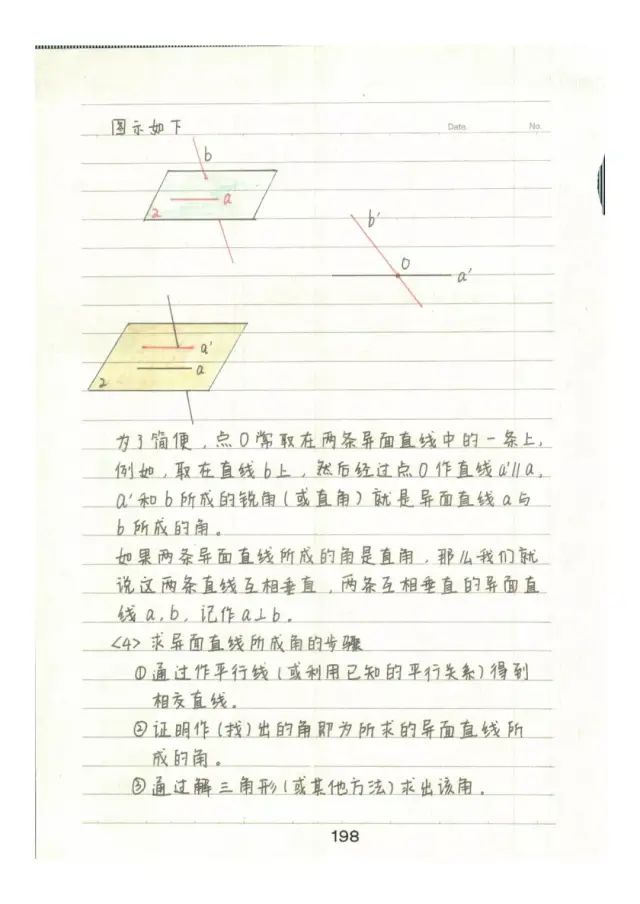 图示如下
Date.
No.
b
a
2
b'
O
a'
a'
a
2
为了简便，点O常取在两条异面直线中的一条上，
例如，取在直线b上，然后经过点O作直线a'∥a，
a'和b所成的锐角（或直角）就是异面直线a与
b所成的角。
如果两条异面直线所成的角是直角，那么我们就
说这两条直线互相垂直，两条互相垂直的异面直
线a，b，记作a⊥b。
<4> 求异面直线所成角的步骤
①通过作平行线（或利用已知的平行关系）得到
相交直线。
②证明作（找）出的角即为所求的异面直线所
成的角。
③通过解三角形（或其他方法）求出该角。
198